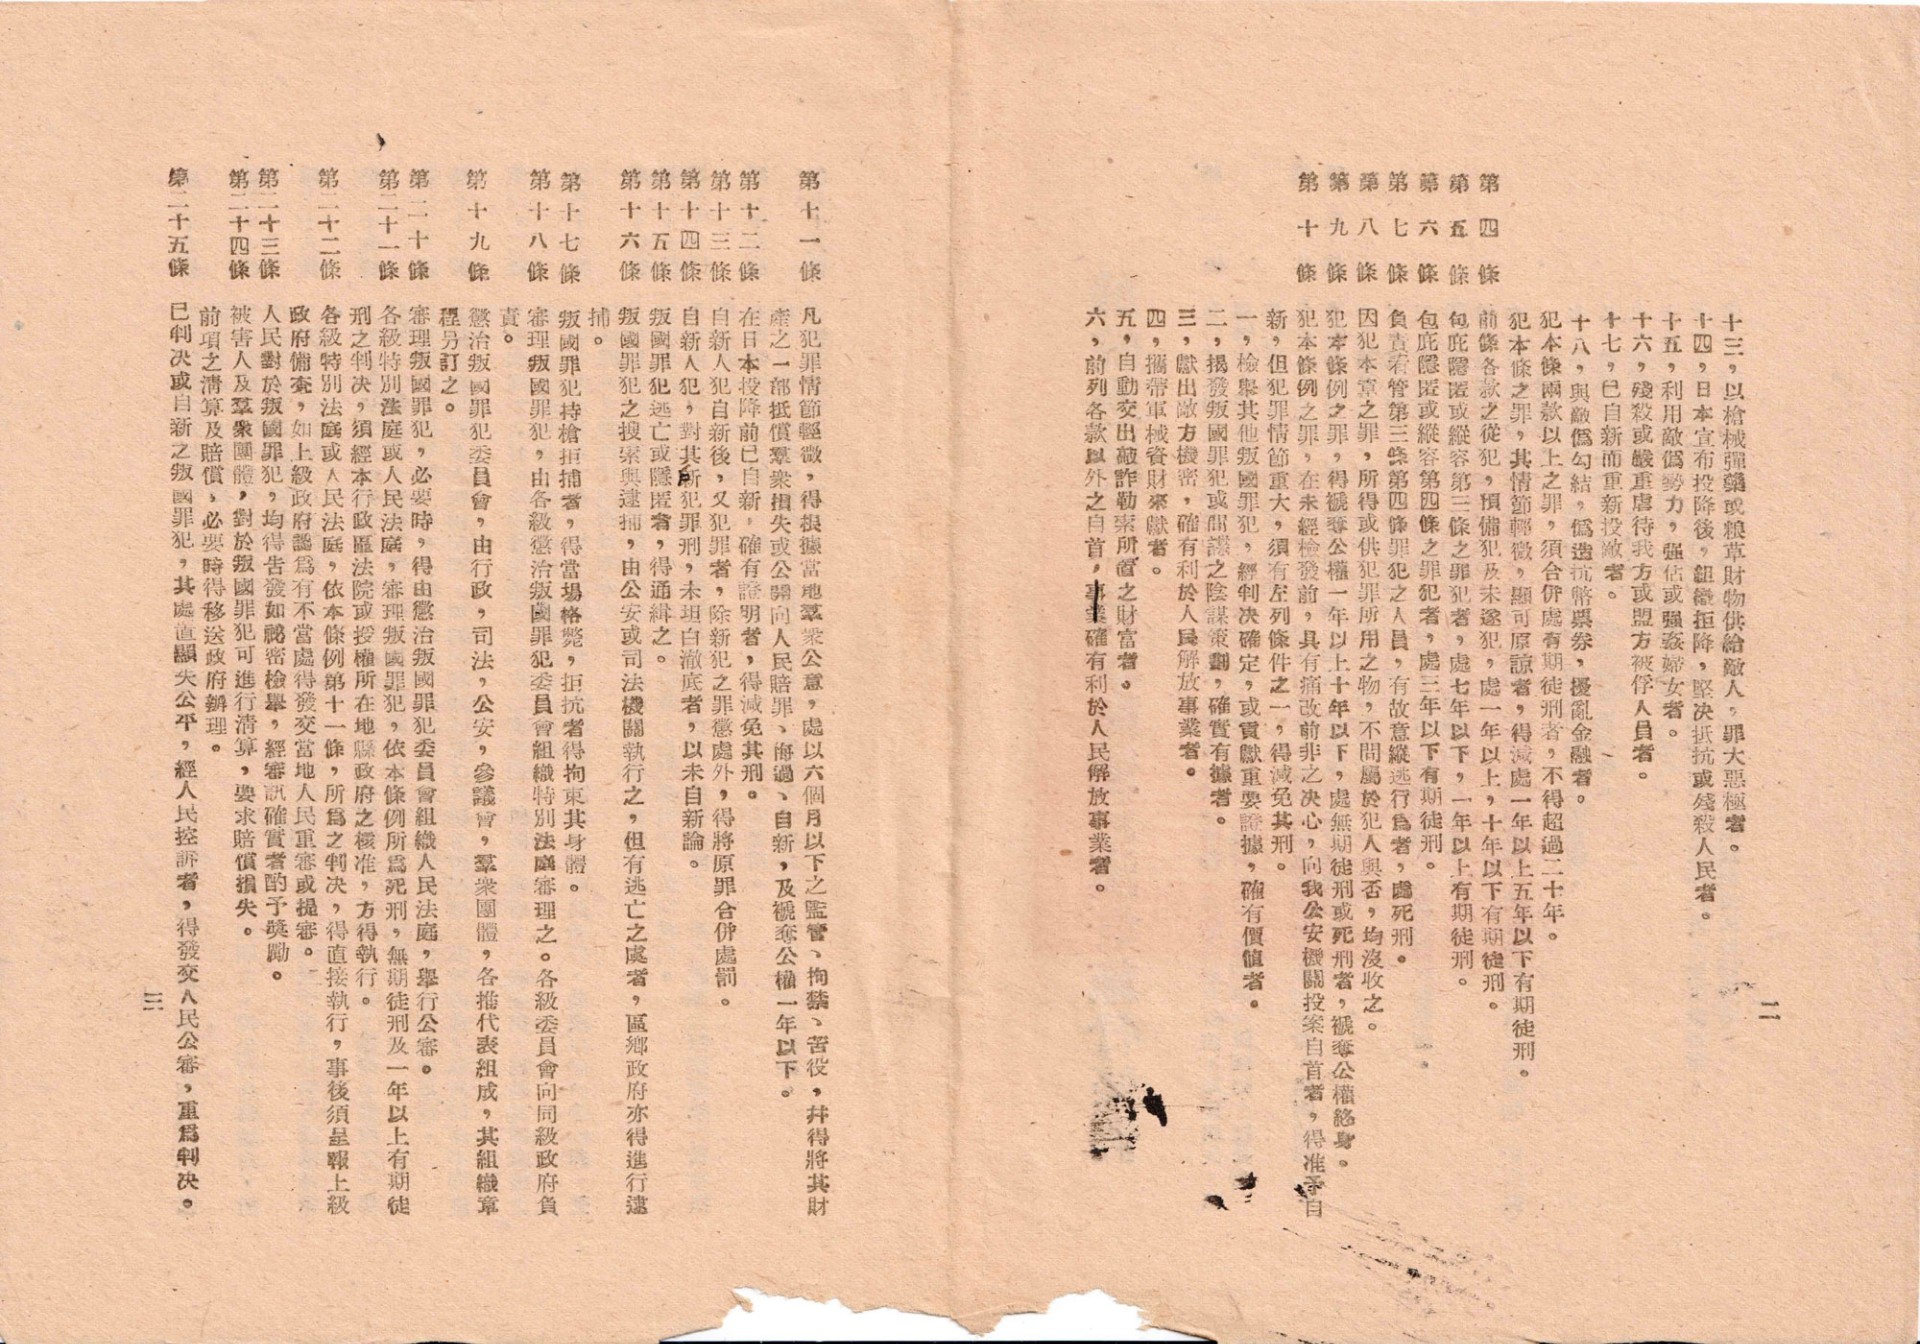 二
十三，以槍械彈藥或粮草財物供給敵人，罪大惡極者。
十四，日本宣布投降後，組織拒降，堅决抵抗或殘殺人民者。
十五，利用敵僞勢力，强佔或强姦婦女者。
十六，殘殺或嚴重虐待我方或盟方被俘人員者。
十七，已自新而重新投敵者。
十八，與敵僞勾結，僞造抗幣票券，擾亂金融者。
犯本條兩款以上之罪，須合併處有期徒刑者，不得超過二十年。
犯本條之罪，其情節輕微，顯可原諒者，得减處一年以上五年以下有期徒刑。
第四條 前條各款之從犯，預備犯及未遂犯，處一年以上，十年以下有期徒刑。
第五條 包庇隱匿或縱容第三條之罪犯者，處七年以下，一年以上有期徒刑。
第六條 包庇隱匿或縱容第四條之罪犯者，處三年以下有期徒刑。
第七條 負責看管第三條第四條罪犯之人員，有故意縱逃行爲者，處死刑。
第八條 因犯本章之罪，所得或供犯罪所用之物，不問屬於犯人與否，均沒收之。
第九條 犯本條例之罪，得褫奪公權一年以上十年以下，處無期徒刑或死刑者，褫奪公權終身。
第十條 犯本條例之罪，在未經檢發前，具有痛改前非之决心，向我公安機關投案自首者，得准予自
新，但犯罪情節重大，須有左列條件之一，得减免其刑。
一，檢舉其他叛國罪犯，經判决確定，或貢獻重要證據，確有價値者。
二，揭發叛國罪犯或間諜之陰謀策劃，確實有據者。
三，獻出敵方機密，確有利於人民解放事業者。
四，攜帶軍械資財來獻者。
五，自動交出敲詐勒索所值之財富者。
六，前列各款以外之自首，事業確有利於人民解放事業者。
第十一條 凡犯罪情節輕微，得根據當地羣衆公意，處以六個月以下之監管、拘禁、苦役，幷得將其財
產之一部抵償羣衆損失或公開向人民賠罪、悔過、自新，及褫奪公權一年以下。
第十二條 在日本投降前已自新，確有證明者，得减免其刑。
第十三條 自新人犯自新後，又犯罪者，除新犯之罪懲處外，得將原罪合併處罰。
第十四條 自新人犯，對其所犯罪刑，未坦白澈底者，以未自新論。
第十五條 叛國罪犯逃亡或隱匿者，得通緝之。
第十六條 叛國罪犯之搜索與逮捕，由公安或司法機關執行之，但有逃亡之虞者，區鄉政府亦得進行逮
捕。
第十七條 叛國罪犯持槍拒捕者，得當場格斃，拒抗者得拘束其身體。
第十八條 審理叛國罪犯，由各級懲治叛國罪犯委員會組織特別法庭審理之。各級委員會向同級政府負
責。
第十九條 懲治叛國罪犯委員會，由行政，司法，公安，參議會，羣衆團體，各推代表組成，其組織章
程另訂之。
第二十條 審理叛國罪犯，必要時，得由懲治叛國罪犯委員會組織人民法庭，舉行公審。
第二十一條 各級特別法庭或人民法庭，審理叛國罪犯，依本條例所爲死刑，無期徒刑及一年以上有期徒
刑之判决，須經本行政區法院或授權所在地縣政府之核准，方得執行。
第二十二條 各級特別法庭或人民法庭，依本條例第十一條，所爲之判决，得直接執行，事後須呈報上級
政府備查，如上級政府認爲有不當處得發交當地人民重審或提審。
第二十三條 人民對於叛國罪犯，均得告發如祕密檢舉，經審訊確實者酌予獎勵。
第二十四條 被害人及羣衆團體，對於叛國罪犯可進行淸算，要求賠償損失。
前項之淸算及賠償，必要時得移送政府辦理。
第二十五條 已判决或自新之叛國罪犯，其處置顯失公平，經人民控訴者，得發交人民公審，重爲判决。
三